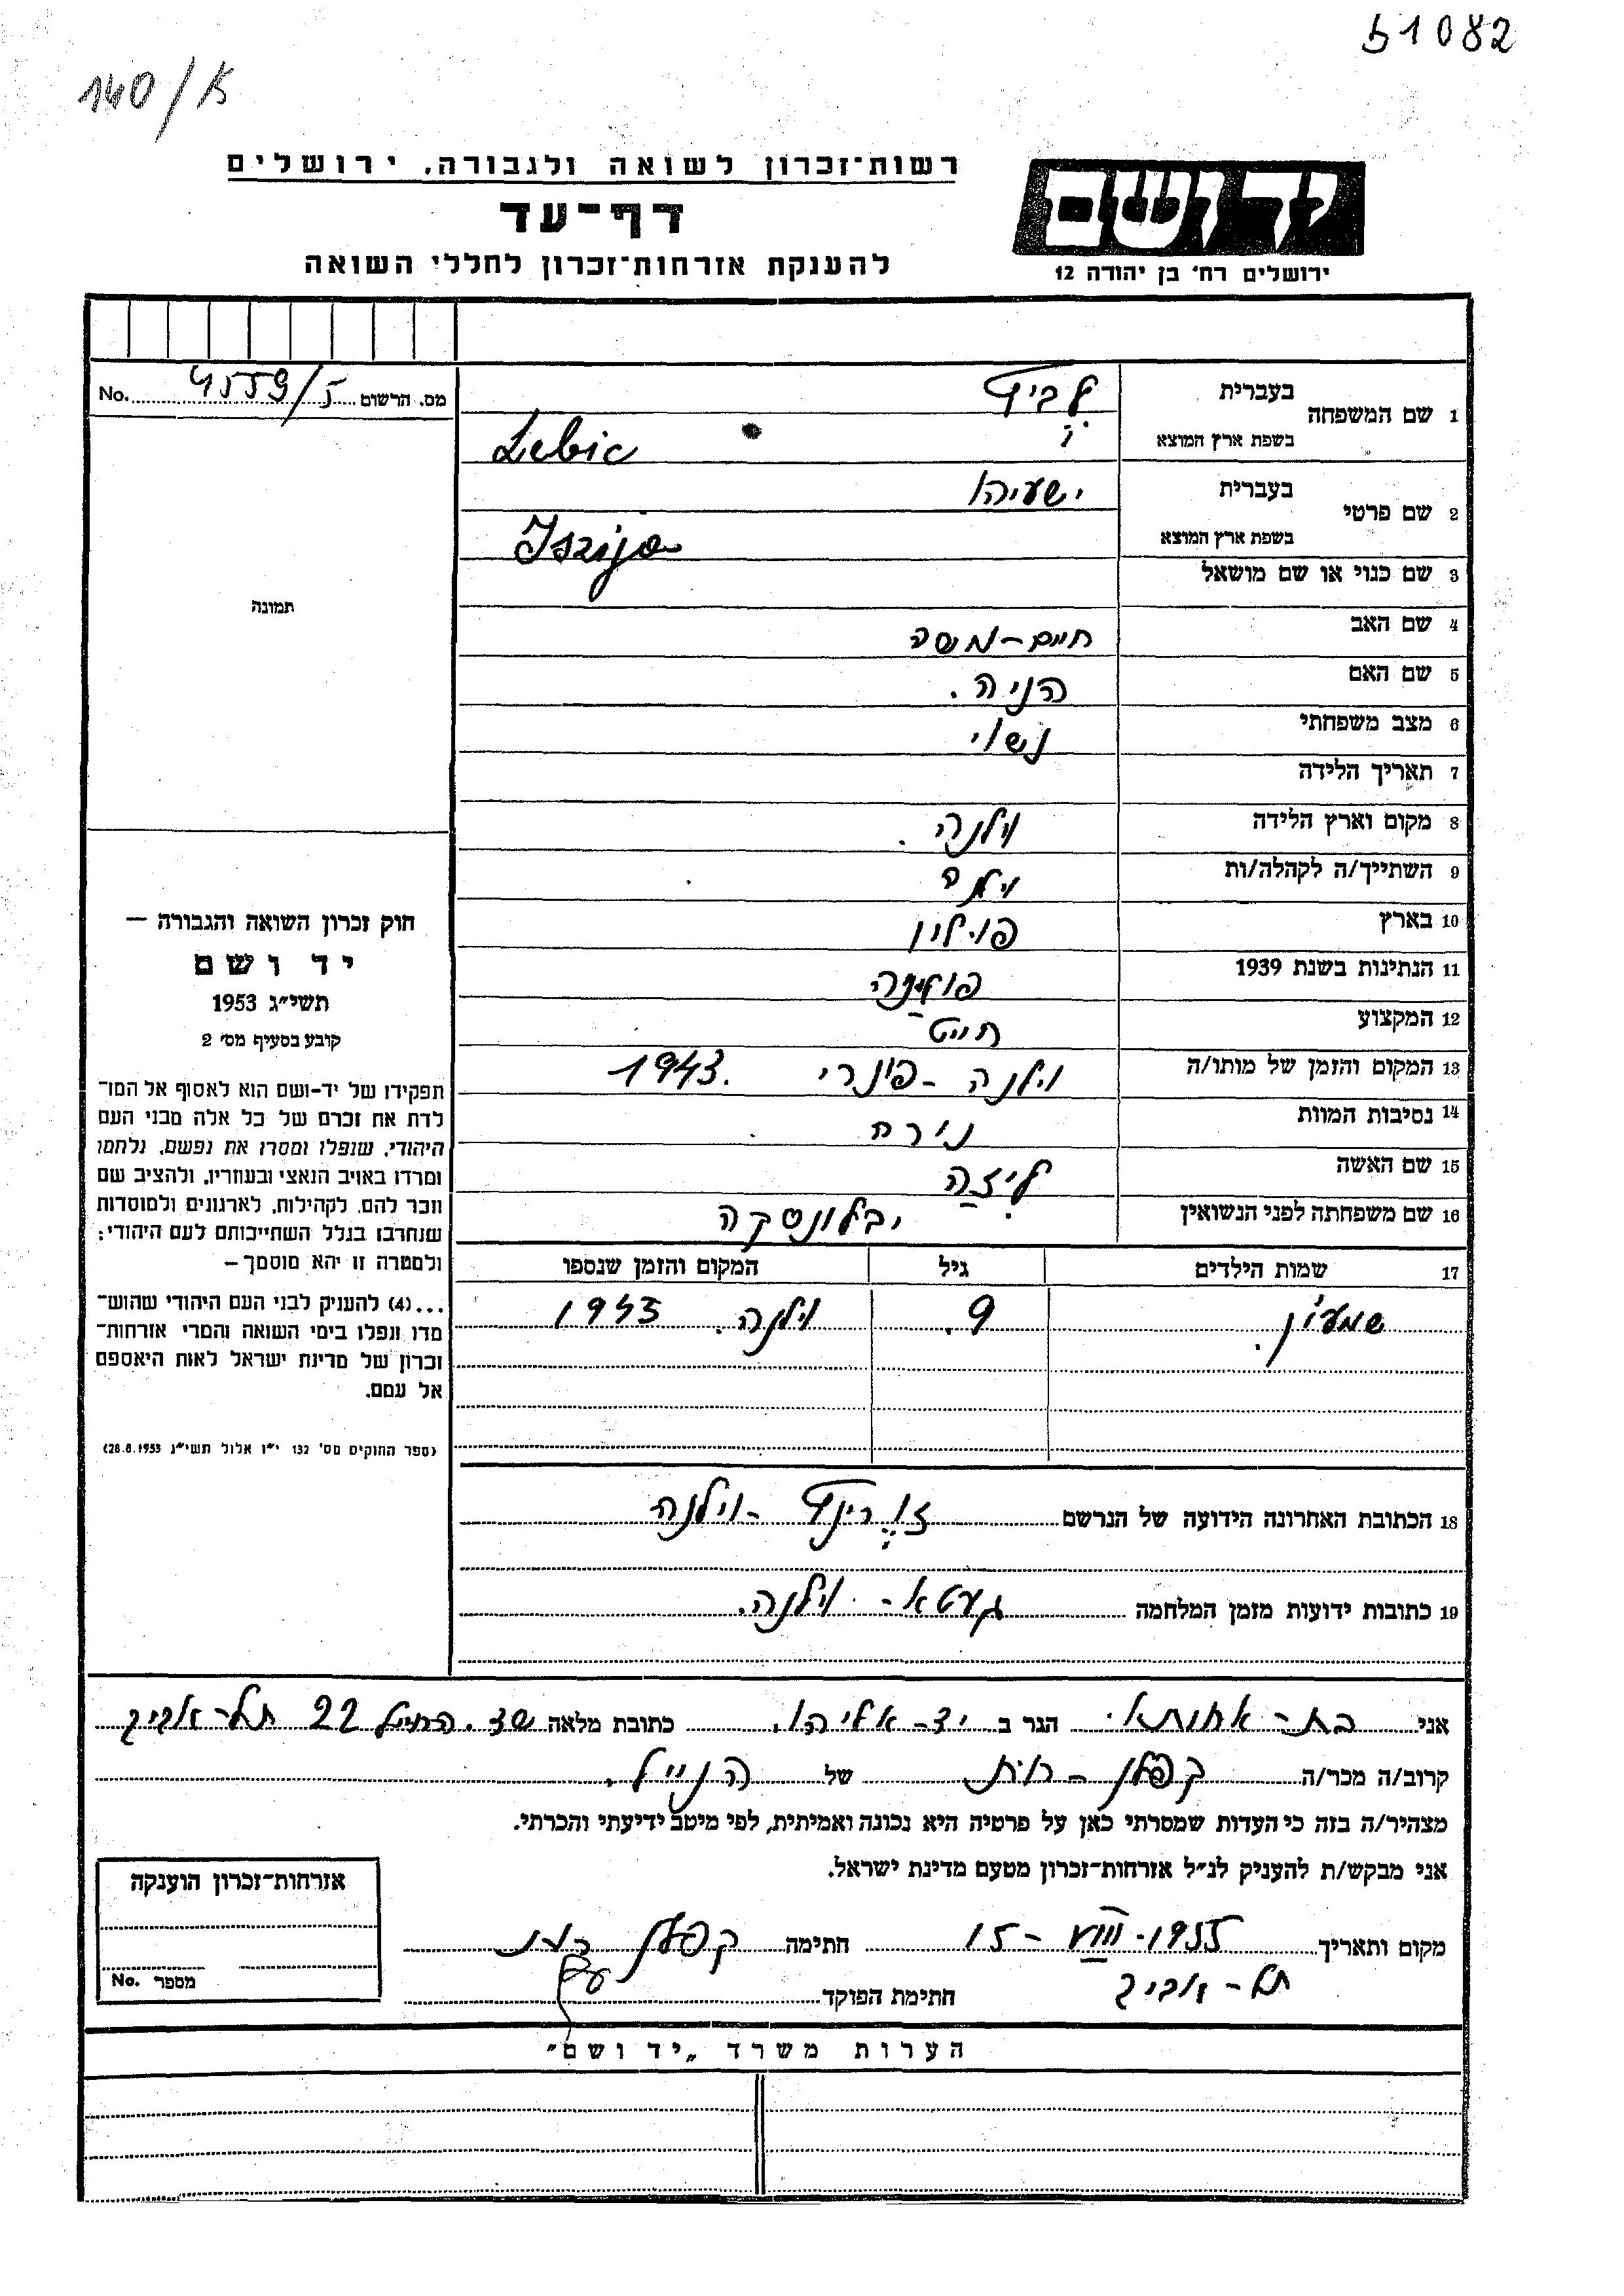 51082
140/א
רשות־זכרון לשואה ולגבורה, ירושלים
דף־עד
להענקת אזרחות־זכרון לחללי השואה
יד ושם
ירושלים רח׳ בן יהודה 12
מס. הרשום 4559/5 No.
1 שם המשפחה
בעברית לביץ
בשפת ארץ המוצא Lebic
2 שם פרטי
בעברית ישעיהו
בשפת ארץ המוצא Iszijo
3 שם כנוי או שם מושאל
4 שם האב חיים-משה
5 שם האם הניה.
6 מצב משפחתי נשוי
7 תאריך הלידה
8 מקום וארץ הלידה וילנה.
9 השתייך/ה לקהלה/ות וילנה
10 בארץ פוילין
11 הנתינות בשנת 1939 פולנית
12 המקצוע חייט
13 המקום והזמן של מותו/ה וילנה - פונרי 1943.
14 נסיבות המוות נורה
15 שם האשה ליזה
16 שם משפחתה לפני הנשואין יבלונסקה
17 שמות הילדים גיל המקום והזמן שנספו
שמעון. 9. וילנה. 1943
18 הכתובת האחרונה הידועה של הנרשם - וילנה
19 כתובות ידועות מזמן המלחמה געטא - וילנה.
תמונה
חוק זכרון השואה והגבורה —
יד ושם
תשי״ג 1953
קובע בסעיף מס׳ 2
תפקידו של יד-ושם הוא לאסוף אל המו־
לדת את זכרם של כל אלה מבני העם
היהודי, שנפלו ומסרו את נפשם, נלחמו
ומרדו באויב הנאצי ובעוזריו, ולהציב שם
וזכר להם, לקהילות, לארגונים ולמוסדות
שנחרבו בגלל השתייכותם לעם היהודי;
ולמטרה זו יהא מוסמך –
...(4) להעניק לבני העם היהודי שהוש־
מדו ונפלו בימי השואה והמרי אזרחות־
זכרון של מדינת ישראל לאות היאספם
אל עמם.
(ספר החוקים מס׳ 132 י״ז אלול תשי״ג 28.8.1953)
אני בת - אחותו. הגר ב יד-אליהו. כתובת מלאה 22 תל-אביב
קרוב/ה מכר/ה קפלן - של הנ״ל.
מצהיר/ה בזה כי העדות שמסרתי כאן על פרטיה היא נכונה ואמיתית, לפי מיטב ידיעתי והכרתי.
אני מבקש/ת להעניק לנ״ל אזרחות־זכרון מטעם מדינת ישראל.
מקום ותאריך 15 - VIII - 1955 חתימה קפלן
תל-אביב חתימת הפוקד
אזרחות־זכרון הוענקה
מספר No.
הערות משרד „יד ושם״